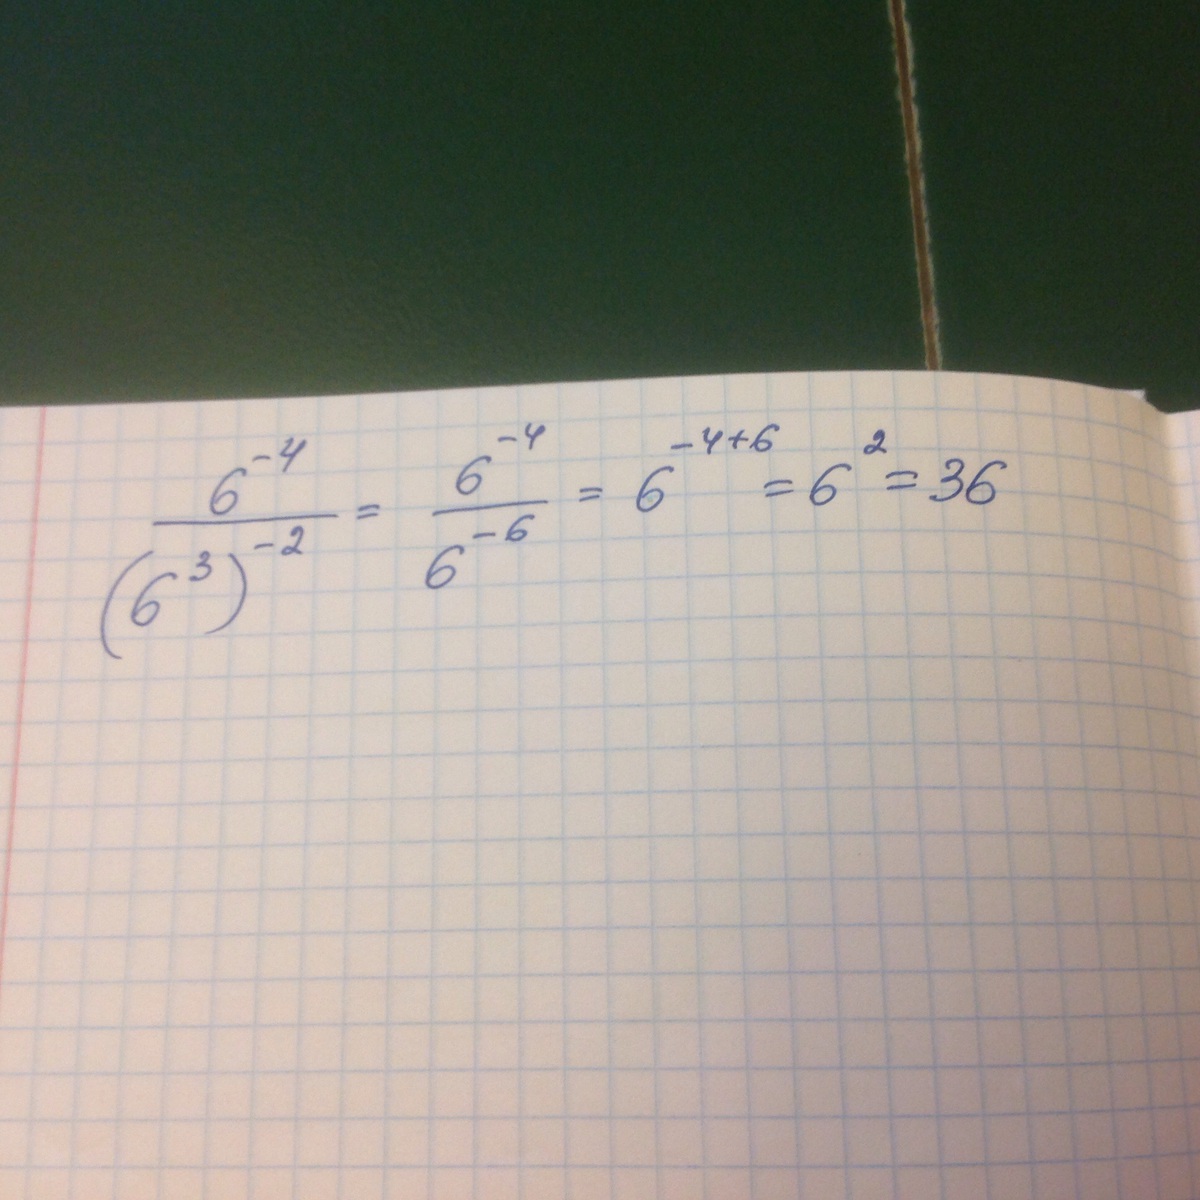 6^{-4} / (6^3)^{-2} = 6^{-4} / 6^{-6} = 6^{-4+6} = 6^2 = 36